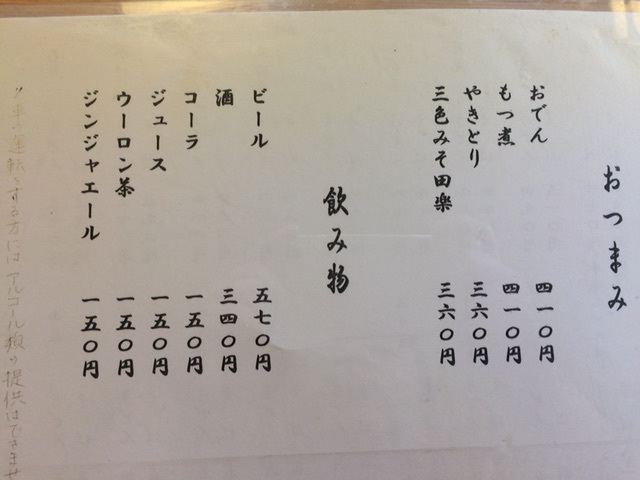 おつまみ
おでん 四一〇円
もつ煮 四一〇円
やきとり 三六〇円
三色みそ田楽 三六〇円
飲み物
ビール 五七〇円
酒 三四〇円
コーラ 一五〇円
ジュース 一五〇円
ウーロン茶 一五〇円
ジンジャエール 一五〇円
車の運転をする方にはアルコール類の提供はできませ